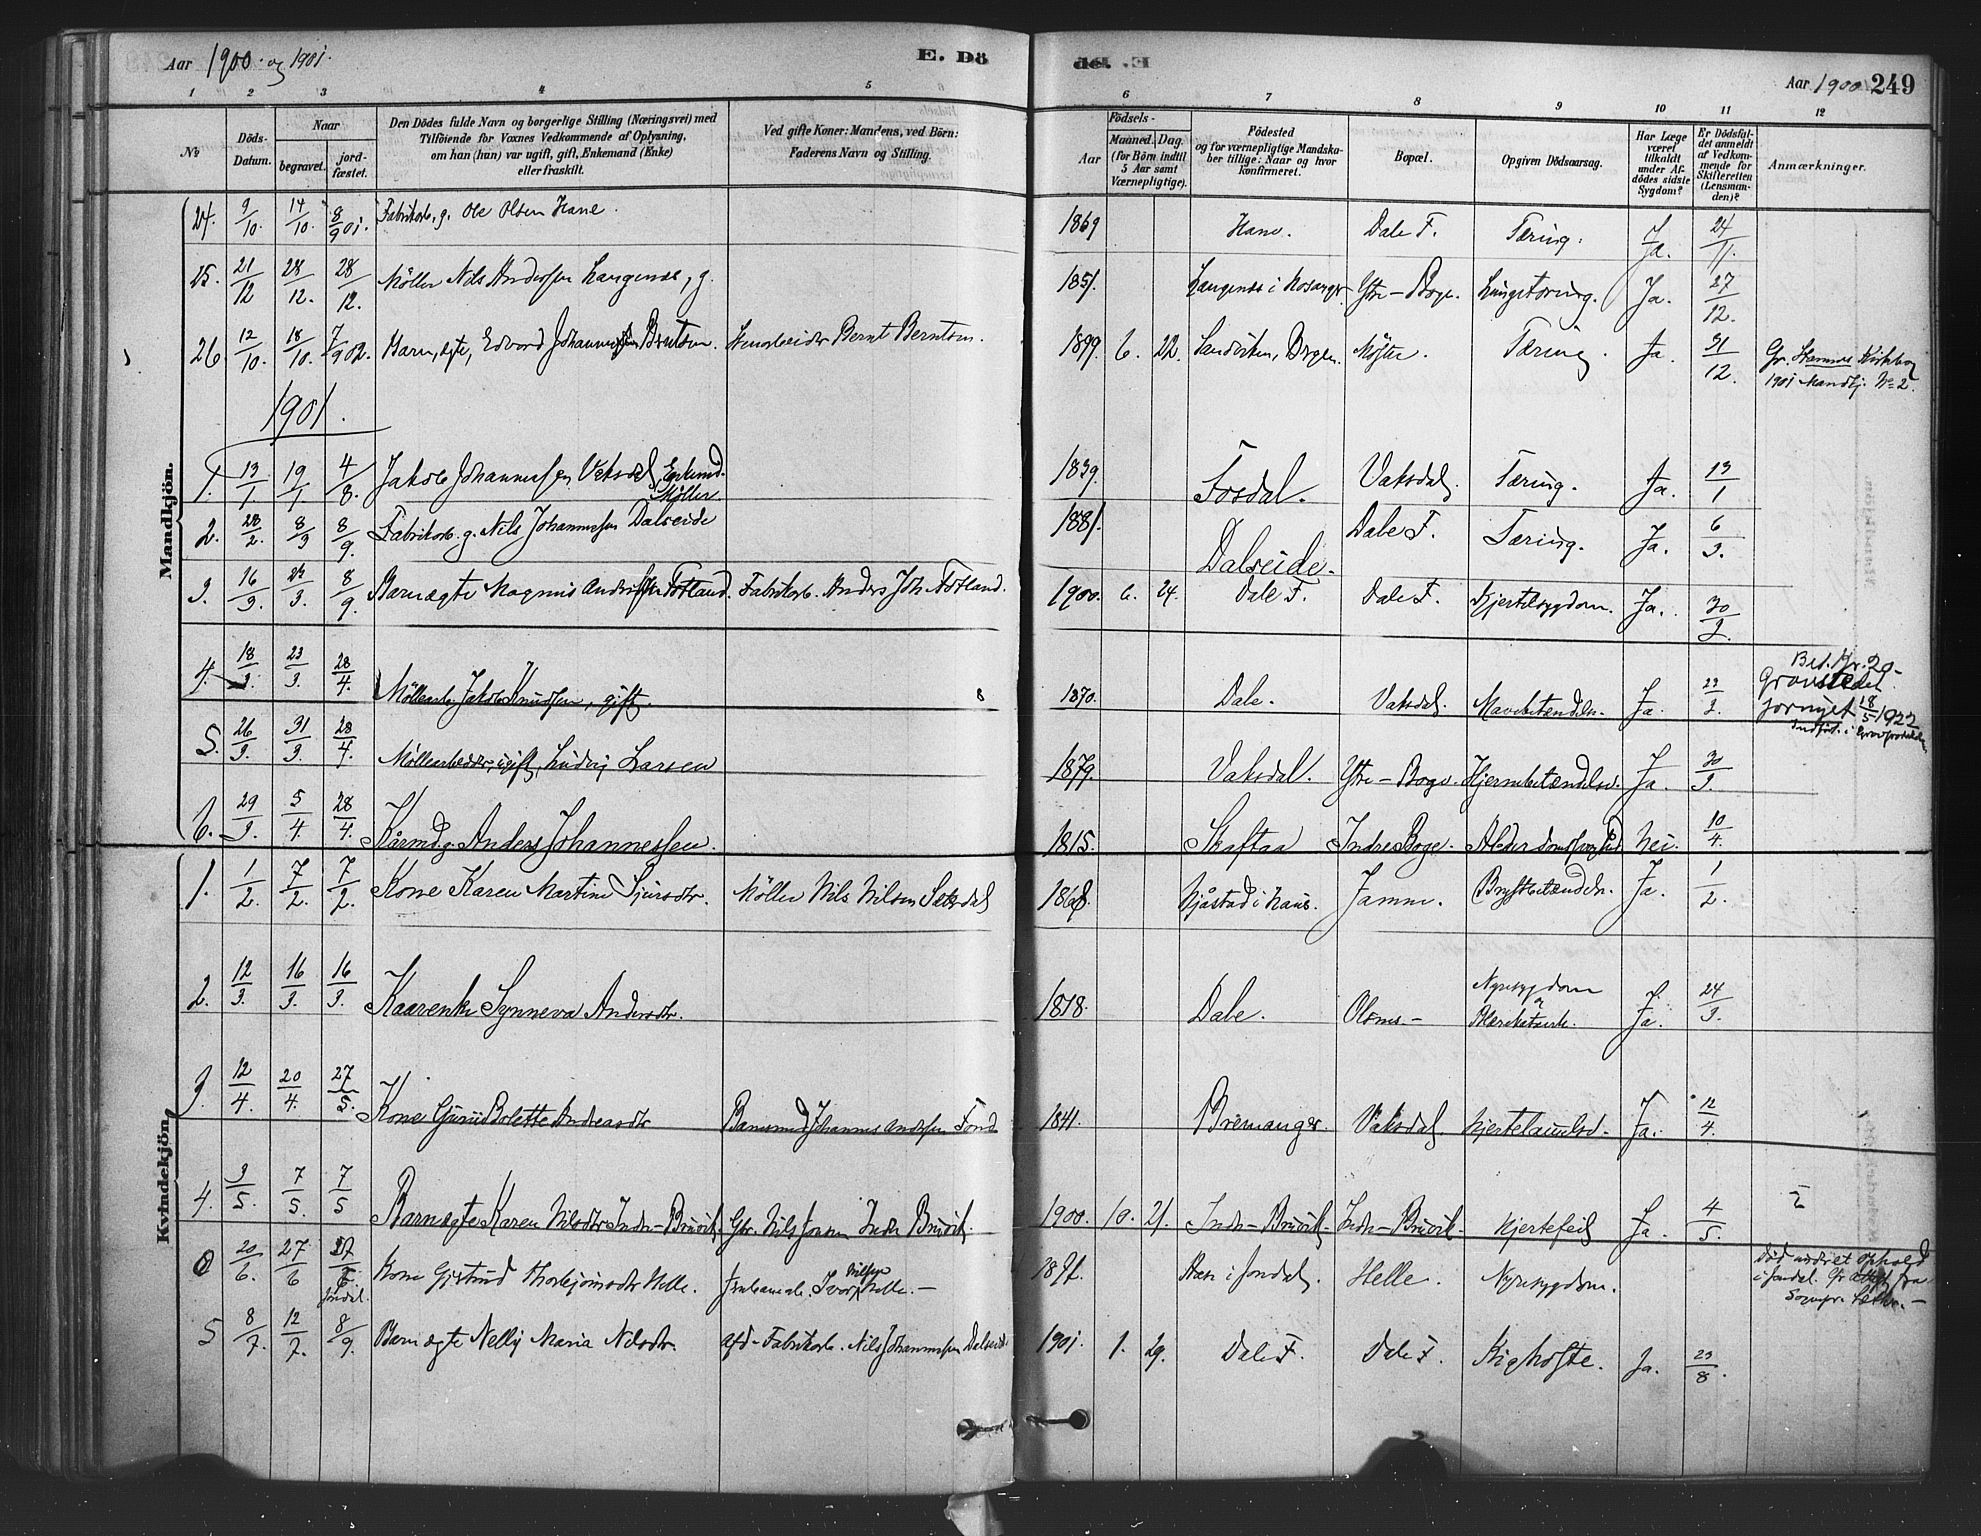 Aar 1900 og 1901.
E. Dö
de. E
Aar 1900 249
1 2 3 4 5 6 7 8 9 10 11 12
№
Döds-Datum.
Naar
begravet.
jord-fæstet.
Den Dödes fulde Navn og borgerlige Stilling (Næringsvei) med
Tilföiende for Voxnes Vedkommende af Oplysning,
om han (hun) var ugift, gift, Enkemand (Enke)
eller fraskilt.
Ved gifte Koner: Mandens, ved Börn:
Faderens Navn og Stilling.
Födsels-
Aar
Maaned. Dag.
(for Börn indtil
5 Aar samt
Værnepligtige).
Födested
og for værnepligtige Mandska-
ber tillige: Naar og hvor
konfirmeret.
Bopæl.
Opgiven Dödsaarsag.
Har Læge
været
tilkaldt
under Af-
dödes sidste
Sygdom?
Er Dödsfal-
det anmeldt
af Vedkom-
mende for
Skifteretten
(Lensman-
den)?
Anmærkninger.
Mandkjön.
24. 9/10. 14/10. 8/9 01. Fabrikarb., g. Ole Olsen Hane. 1869 Hane. Dale F. Tæring. Ja. 24/11.
25. 21/12 28/12. 28/12. Möller Nils Andersen Langenes, g. 1851. Langenes i Hosanger Ytre-Boge. Lungetæring. Ja. 27/12.
26 12/10. 18/10. 7/9 02. Barn, ægte, Edvard Johannessen Berntsen. Stenarbeider Bernt Berntsen. 1899 6. 22. Sandviken, Bergen. Myster. Tæring. Ja. 31/12. Gr. Stamnes Kirkebog
1901 Mandkj. № 2.
1901.
1. 13/1 19/1 4/8. Jakob Johannessen Vaksdal, Enkemd.
Möller 1839. Fosdal. Vaksdal. Tæring. Ja. 13/1
2. 28/2. 8/3 8/9. Fabrikarb. g. Nils Johannessen Dalseide 1881. Dalseide. Dale F. Tæring. Ja. 6/3.
3. 16/3. 23/3. 8/9. Barn ægte Magnus Andersen Fotland. Fabrikarb. Anders Joh. Fotland. 1900. 6. 24. Dale F. Dale F. Kjertelsygdom. Ja. 30/3.
4. 18/3. 23/3. 28/4. Möllearb. Jakob Knudsen, gift. 1870. Dale. Vaksdal. Mavebetændelse. Ja. 23/3. Bet. Kr. 20-
Gravstedet
fornyet 18/5 1922
Indfört i
5. 26/3. 31/3. 28/4. Möllearbeider, ugift, Ludvig Larsen 1879. Vaksdal. Ytre-Boge. Hjernebetændelse. Ja. 30/3.
6. 29/3. 5/4 28/4. Kårmd. g. Anders Johannessen. 1815. Skaftaa Indre Boge. Alderdomssvaghed Nei. 10/4.
Kvindekjön.
1. 1/2. 7/2. 7/2. Kone Karen Martine Sjursdtr. Möller Nils Nilsen Vaksdal 1868. Njåstad i Haus. Jamne. Brystbetændelse. Ja. 1/2.
2. 12/3. 16/3. 16/3. Kaarenke Synneva Andersdtr. 1818. Dale. Olsnes.- Nyresygdom
og
Blærekatarrh. Ja. 24/3.
3. 12/4. 20/4. 27/5. Kone Guruid Bolette Andreasdtr Banemd Johannes Andersen Fond 1841. Bremanger. Vaksdal. Hjertelamelse. Ja. 12/4.
4. 3/5. 7/5. 7/5 Barn ægte Karen Nilsdtr Indre-Bruvik. Gbr. Nils Jonsen Indre Bruvik. 1900. 10. 21. Indre-Bruvik. Indre-Bruvik. Hjertefeil Ja. 4/5.
0 20/6. 27/6 27/6. Jondal. Kone Gjertrud Thorbjörnsdtr Helle. Ivar Nilsen Helle.- i Jondal. Helle. Nyresygdom. Död under et ophold
i Jondal. Gr. Attest fra
Sognepr.
5 8/7. 12/7. 8/9. Barn ægte Nelly Maria Nilsdtr. afd. Fabrikarb. Nils Johannessen Dalseide 1901 1. 29. Dale F. Dale F. Kighoste. Ja. 23/8.